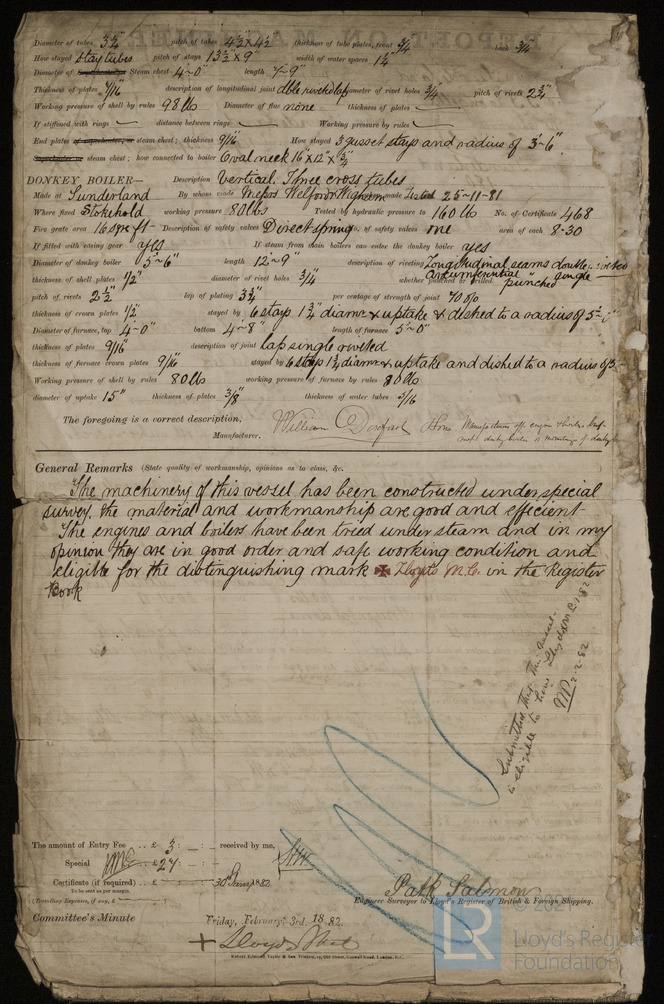 Diameter of tubes 3¼" pitch of tubes 4½" x 4½ thickness of tube plates, front ¾" back ¾"
How stayed Stay tubes pitch of stays 13½ x 9" width of water spaces 1¼
Diameter of Steam chest 4-0" length 7-9"
Thickness of plates 7/16 description of longitudinal joint dble rivetd lap diameter of rivet holes ¾" pitch of rivets 2¾"
Working pressure of shell by rules 98 lbs Diameter of flue none thickness of plates
If stiffened with rings distance between rings Working pressure by rules
End plates of steam chest; thickness 9/16 How stayed 3 gusset stays and radius of 3'-6"
steam chest; how connected to boiler Oval neck 16" x 12" x
DONKEY BOILER— Description Vertical. Three cross tubes
Made at Sunderland By whom made Messrs Welford Wigham made Tested 25-11-81
Where fixed Stokehold working pressure 80 lbs Tested by hydraulic pressure to 160 lbs No. of Certificate 468
Fire grate area 16 sqre ft Description of safety valves Direct spring No. of safety valves one area of each 8.30
If fitted with easing gear yes If steam from main boilers can enter the donkey boiler yes
Diameter of donkey boiler 5'-6" length 12'-9" description of riveting Longitudinal seams double rivited
circumferential " single
thickness of shell plates ½" diameter of rivet holes ¾" whether punched or drilled punched
pitch of rivets 2½" lap of plating 3¾" per centage of strength of joint 70 o/o
thickness of crown plates ½" stayed by 6 stays 1¾" diamr & uptake & dished to a radius of 5
Diameter of furnace, top 4-0" bottom 4-8" length of furnace 5'-0"
thickness of plates 9/16" description of joint lap single riveted
thickness of furnace crown plates 9/16 stayed by 6 stays 1¾ diamr & uptake and dished to a radius of 5
Working pressure of shell by rules 80 lbs working pressure of furnace by rules 80 lbs
diameter of uptake 15" thickness of plates 3/8" thickness of water tubes 5/16
The foregoing is a correct description,
Manufacturer. William Doxford & Sons Manufacturers of engine & boilers
General Remarks (State quality of workmanship, opinions as to class, &c.
The machinery of this vessel has been constructed under special
survey, the material and workmanship are good and effecient
The engines and boilers have been tried under steam and in my
opinion they are in good order and safe working condition and
eligible for the distinguishing mark ✠ Lloyds M.C. in the Register
Book
Submitted that this vessel
is eligible to have Lloyds MC 1.82
2.2.82
The amount of Entry Fee . . £ 3 : - : - received by me,
Special . . £ 27 : :
Certificate (if required) . . £ 30th Jany 1882.
To be sent as per margin.
(Travelling Expenses, if any, £ )
Patk Salmon
Engineer Surveyor to Lloyd's Register of British & Foreign Shipping.
Committee's Minute Friday, February 3rd. 1882.
+ Lloyds M.C.
Robert Edmund Taylor & Son, Printers, 19, Old Street, Goswell Road, London, E.C.
LR
© 202
Lloyd's Register
Foundation